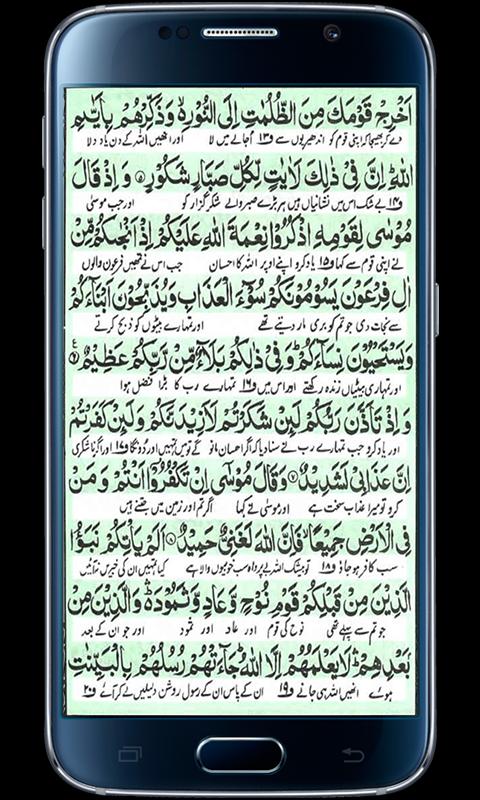 اَخْرِجْ قَوْمَكَ مِنَ الظُّلُمٰتِ اِلَی النُّوْرِ ۙ۬ وَذَکِّرْهُمْ بِاَیّٰىمِ
دے کر بھیجا کہ اپنی قوم کو اندھیریوں سے و۱۳ اُجالے میں لا اور انھیں اللہ کے دن یاد دلا
اللهِ ؕ اِنَّ فِیْ ذٰلِكَ لَاٰیٰتٍ لِّکُلِّ صَبَّارٍ شَکُوْرٍ ۝۵ وَ اِذْ قَالَ
و۱۴ بے شک اس میں نشانیاں ہیں ہر بڑے صبر والے شکر گزار کو اور جب موسٰی
مُوْسٰی لِقَوْمِهِ اذْکُرُوْا نِعْمَةَ اللهِ عَلَیْکُمْ اِذْ اَنْجٰىکُمْ مِّنْ
نے اپنی قوم سے کہا و۱۵ یاد کرو اپنے اوپر اللہ کا احسان جب اس نے تمھیں فرعون والوں
اٰلِ فِرْعَوْنَ یَسُوْمُوْنَکُمْ سُوْٓءَ الْعَذَابِ وَ یُذَبِّحُوْنَ اَبْنَآءَکُمْ
سے نجات دی جو تم کو بری مار دیتے تھے اور تمہارے بیٹوں کو ذبح کرتے
وَیَسْتَحْیُوْنَ نِسَآءَکُمْ ؕ وَ فِیْ ذٰلِکُمْ بَلَآءٌ مِّنْ رَّبِّکُمْ عَظِیْمٌ ۝۶
اور تمہاری بیٹیاں زندہ رکھتے اور اس میں و۱۶ تمہارے رب کا بڑا فضل ہوا
وَ اِذْ تَاَذَّنَ رَبُّکُمْ لَئِنْ شَکَرْتُمْ لَاَزِیْدَنَّکُمْ وَلَئِنْ کَفَرْتُمْ
اور یاد کرو جب تمہارے رب نے سنا دیا کہ اگر احسان مانو گے تو میں تمہیں اور دوں گا و۱۷ اور اگر ناشکری
اِنَّ عَذَابِیْ لَشَدِیْدٌ ۝۷ وَقَالَ مُوْسٰۤی اِنْ تَکْفُرُوْۤا اَنْتُمْ وَ مَنْ
کرو تو میرا عذاب سخت ہے اور موسٰی نے کہا اگر تم اور زمین میں جتنے ہیں
فِی الْاَرْضِ جَمِیْعًا ۙ فَاِنَّ اللهَ لَغَنِیٌّ حَمِیْدٌ ۝۸ اَلَمْ یَاْتِکُمْ نَبَؤُا
سب کافر ہو جاؤ و۱۸ تو بیشک اللہ بے پرواہ سب خوبیوں والا ہے کیا تمہیں ان کی خبریں نہ آئیں
الَّذِیْنَ مِنْ قَبْلِکُمْ قَوْمِ نُوْحٍ وَّ عَادٍ وَّ ثَمُوْدَ ۛ۬ؕ وَالَّذِیْنَ مِنْ
جو تم سے پہلے تھی نوح کی قوم اور عاد اور ثمود اور جو ان کے بعد
بَعْدِهِمْ ۛؕ لَا یَعْلَمُهُمْ اِلَّا اللهُ ؕ جَآءَتْهُمْ رُسُلُهُمْ بِالْبَیِّنٰتِ
ہوئے انھیں اللہ ہی جانے و۱۹ ان کے پاس ان کے رسول روشن دلیلیں لے کر آئے و۲۰